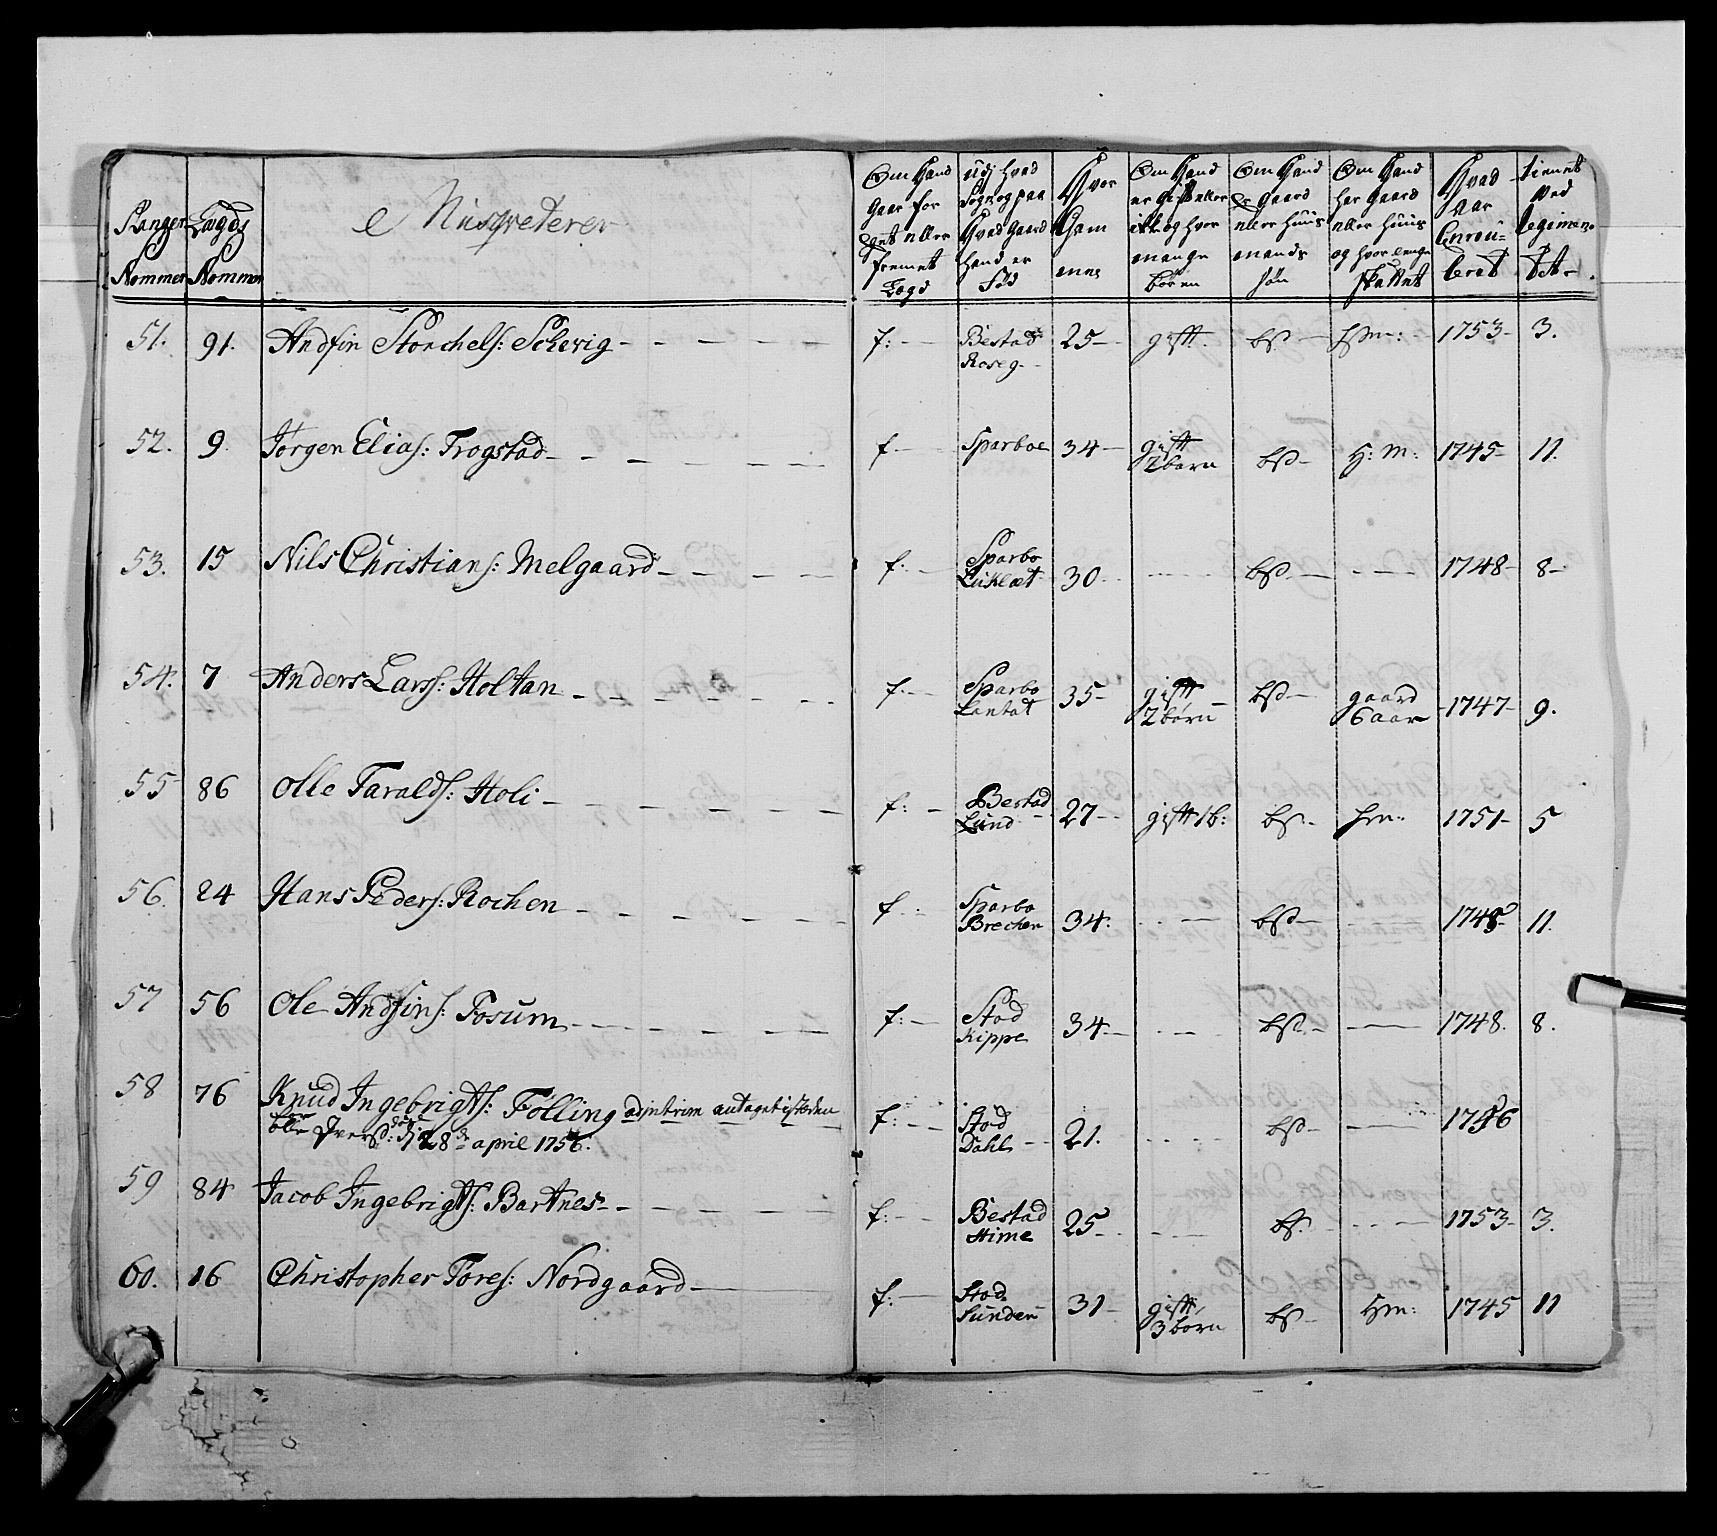 Ranger Nommer
Lægds Nommer
Musqveterer
Om Hand Gaar for Eget eller fremet Lægd
udi hvad Sogn og paa Hvad Gaard Hand er Fød
Hvor Gam mel
Om Hand er Gift eller ikke og hvor mange børen
Om Hand er gaard eller Huus mands søn
Om Hand har Gaard eller Huus og hvor lenge skattet
Hvad Aar Enrou= leret
tienet ved Regimen= tet
51. 91. Andfin Storchels: Schevig f: Bestad Roseg 25 gift bs hsm: 1753 3.
52. 9. Jørgen Elias: Trogstad f Sparboe 34 gift 2 børn bs H: M: 1745 11.
53. 15 Nils Christians: Melgaard f: Sparbo 30 bs 1748 8
54. 7 Anders Lars: Holtan f: Sparbo 35 gift 2 børn bs gaard 6 aar 1747 9.
55 86 Olle Faralds: Holi f: Bestad Lund 27 gift 1b: bs hm: 1751 5
56. 24 Hans Peders: Rochen f Sparbo Brechen 34. bs 1745 11.
57 56 Ole Andfins: Fosum f: Stod Kippe 34 bs 1748. 8.
58 76 Knud Ingebrigts: Følling adjntrim antaget isteden
for Olle Ivers: død d 28de april 1756. f: Stod Dahl 21. bs 1756
59 84 Jacob Ingebrigts: Bartnes f: Bestad Hime 25 bs. 1753 3.
60. 16 Christopher Tores: Nordgaard f: Stod Sunden 31 gift 3 børn bs Hm: 1745 11